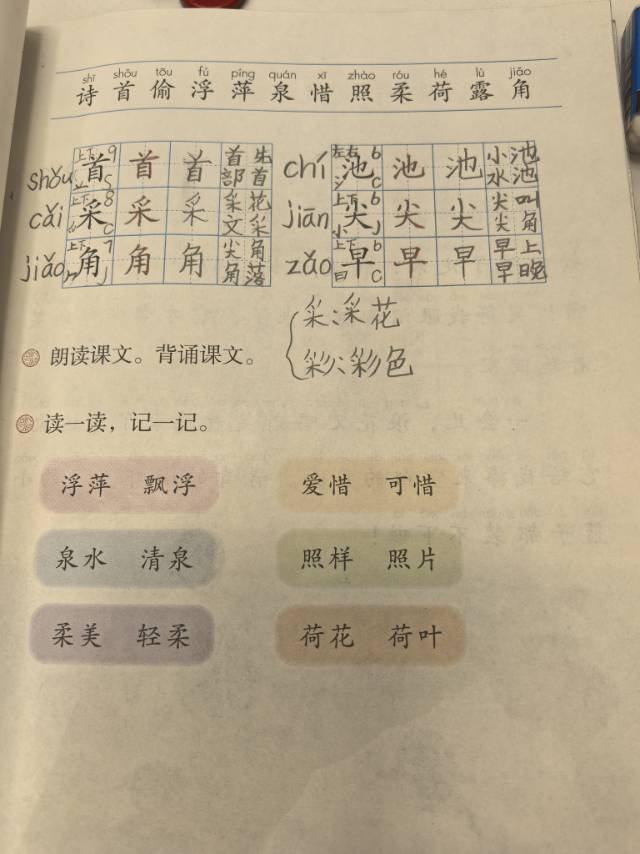 shī shǒu tōu fú píng quán xī zhào róu hé lù jiǎo
诗 首 偷 浮 萍 泉 惜 照 柔 荷 露 角
shǒu 上下 9 首 丷 S 首 首 首先 部首
chí 左右 6 池 氵 C 池 池 小池 水池
cǎi 上下 8 采 爫 C 采 采 采花 文采
jiān 上下 6 尖 小 J 尖 尖 尖叫 尖角
jiǎo 上下 7 角 J 角 角 尖角 角落
zǎo 上下 6 早 日 C 早 早 早上 早晚
采:采花
朗读课文。背诵课文。
彩:彩色
读一读，记一记。
浮萍 飘浮 爱惜 可惜
泉水 清泉 照样 照片
柔美 轻柔 荷花 荷叶